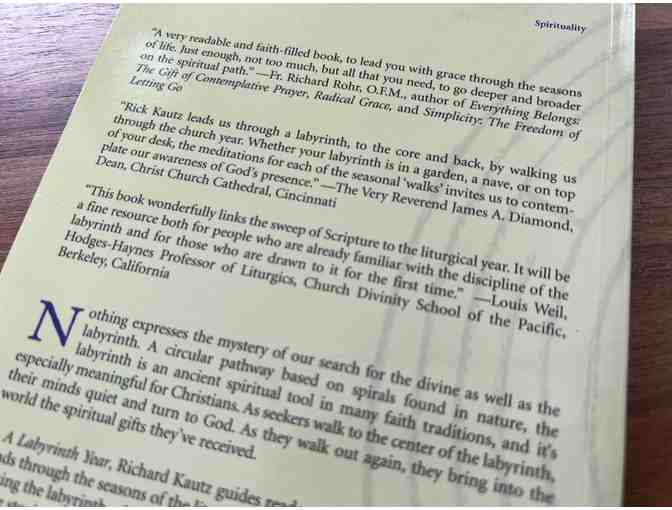 Spirituality
"A very readable and faith-filled book, to lead you with grace through the seasons
of life. Just enough, not too much, but all that you need, to go deeper and broader
on the spiritual path." —Fr. Richard Rohr, O.F.M., author of Everything Belongs:
The Gift of Contemplative Prayer, Radical Grace, and Simplicity: The Freedom of
Letting Go
"Rick Kautz leads us through a labyrinth, to the core and back, by walking us
through the church year. Whether your labyrinth is in a garden, a nave, or on top
of your desk, the meditations for each of the seasonal 'walks' invites us to contem-
plate our awareness of God's presence." —The Very Reverend James A. Diamond,
Dean, Christ Church Cathedral, Cincinnati
"This book wonderfully links the sweep of Scripture to the liturgical year. It will be
a fine resource both for people who are already familiar with the discipline of the
labyrinth and for those who are drawn to it for the first time." —Louis Weil,
Hodges-Haynes Professor of Liturgics, Church Divinity School of the Pacific,
Berkeley, California
Nothing expresses the mystery of our search for the divine as well as the
labyrinth. A circular pathway based on spirals found in nature, the
labyrinth is an ancient spiritual tool in many faith traditions, and it's
especially meaningful for Christians. As seekers walk to the center of the labyrinth,
their minds quiet and turn to God. As they walk out again, they bring into the
world the spiritual gifts they've received.
A Labyrinth Year, Richard Kautz guides
through the seasons of the
the